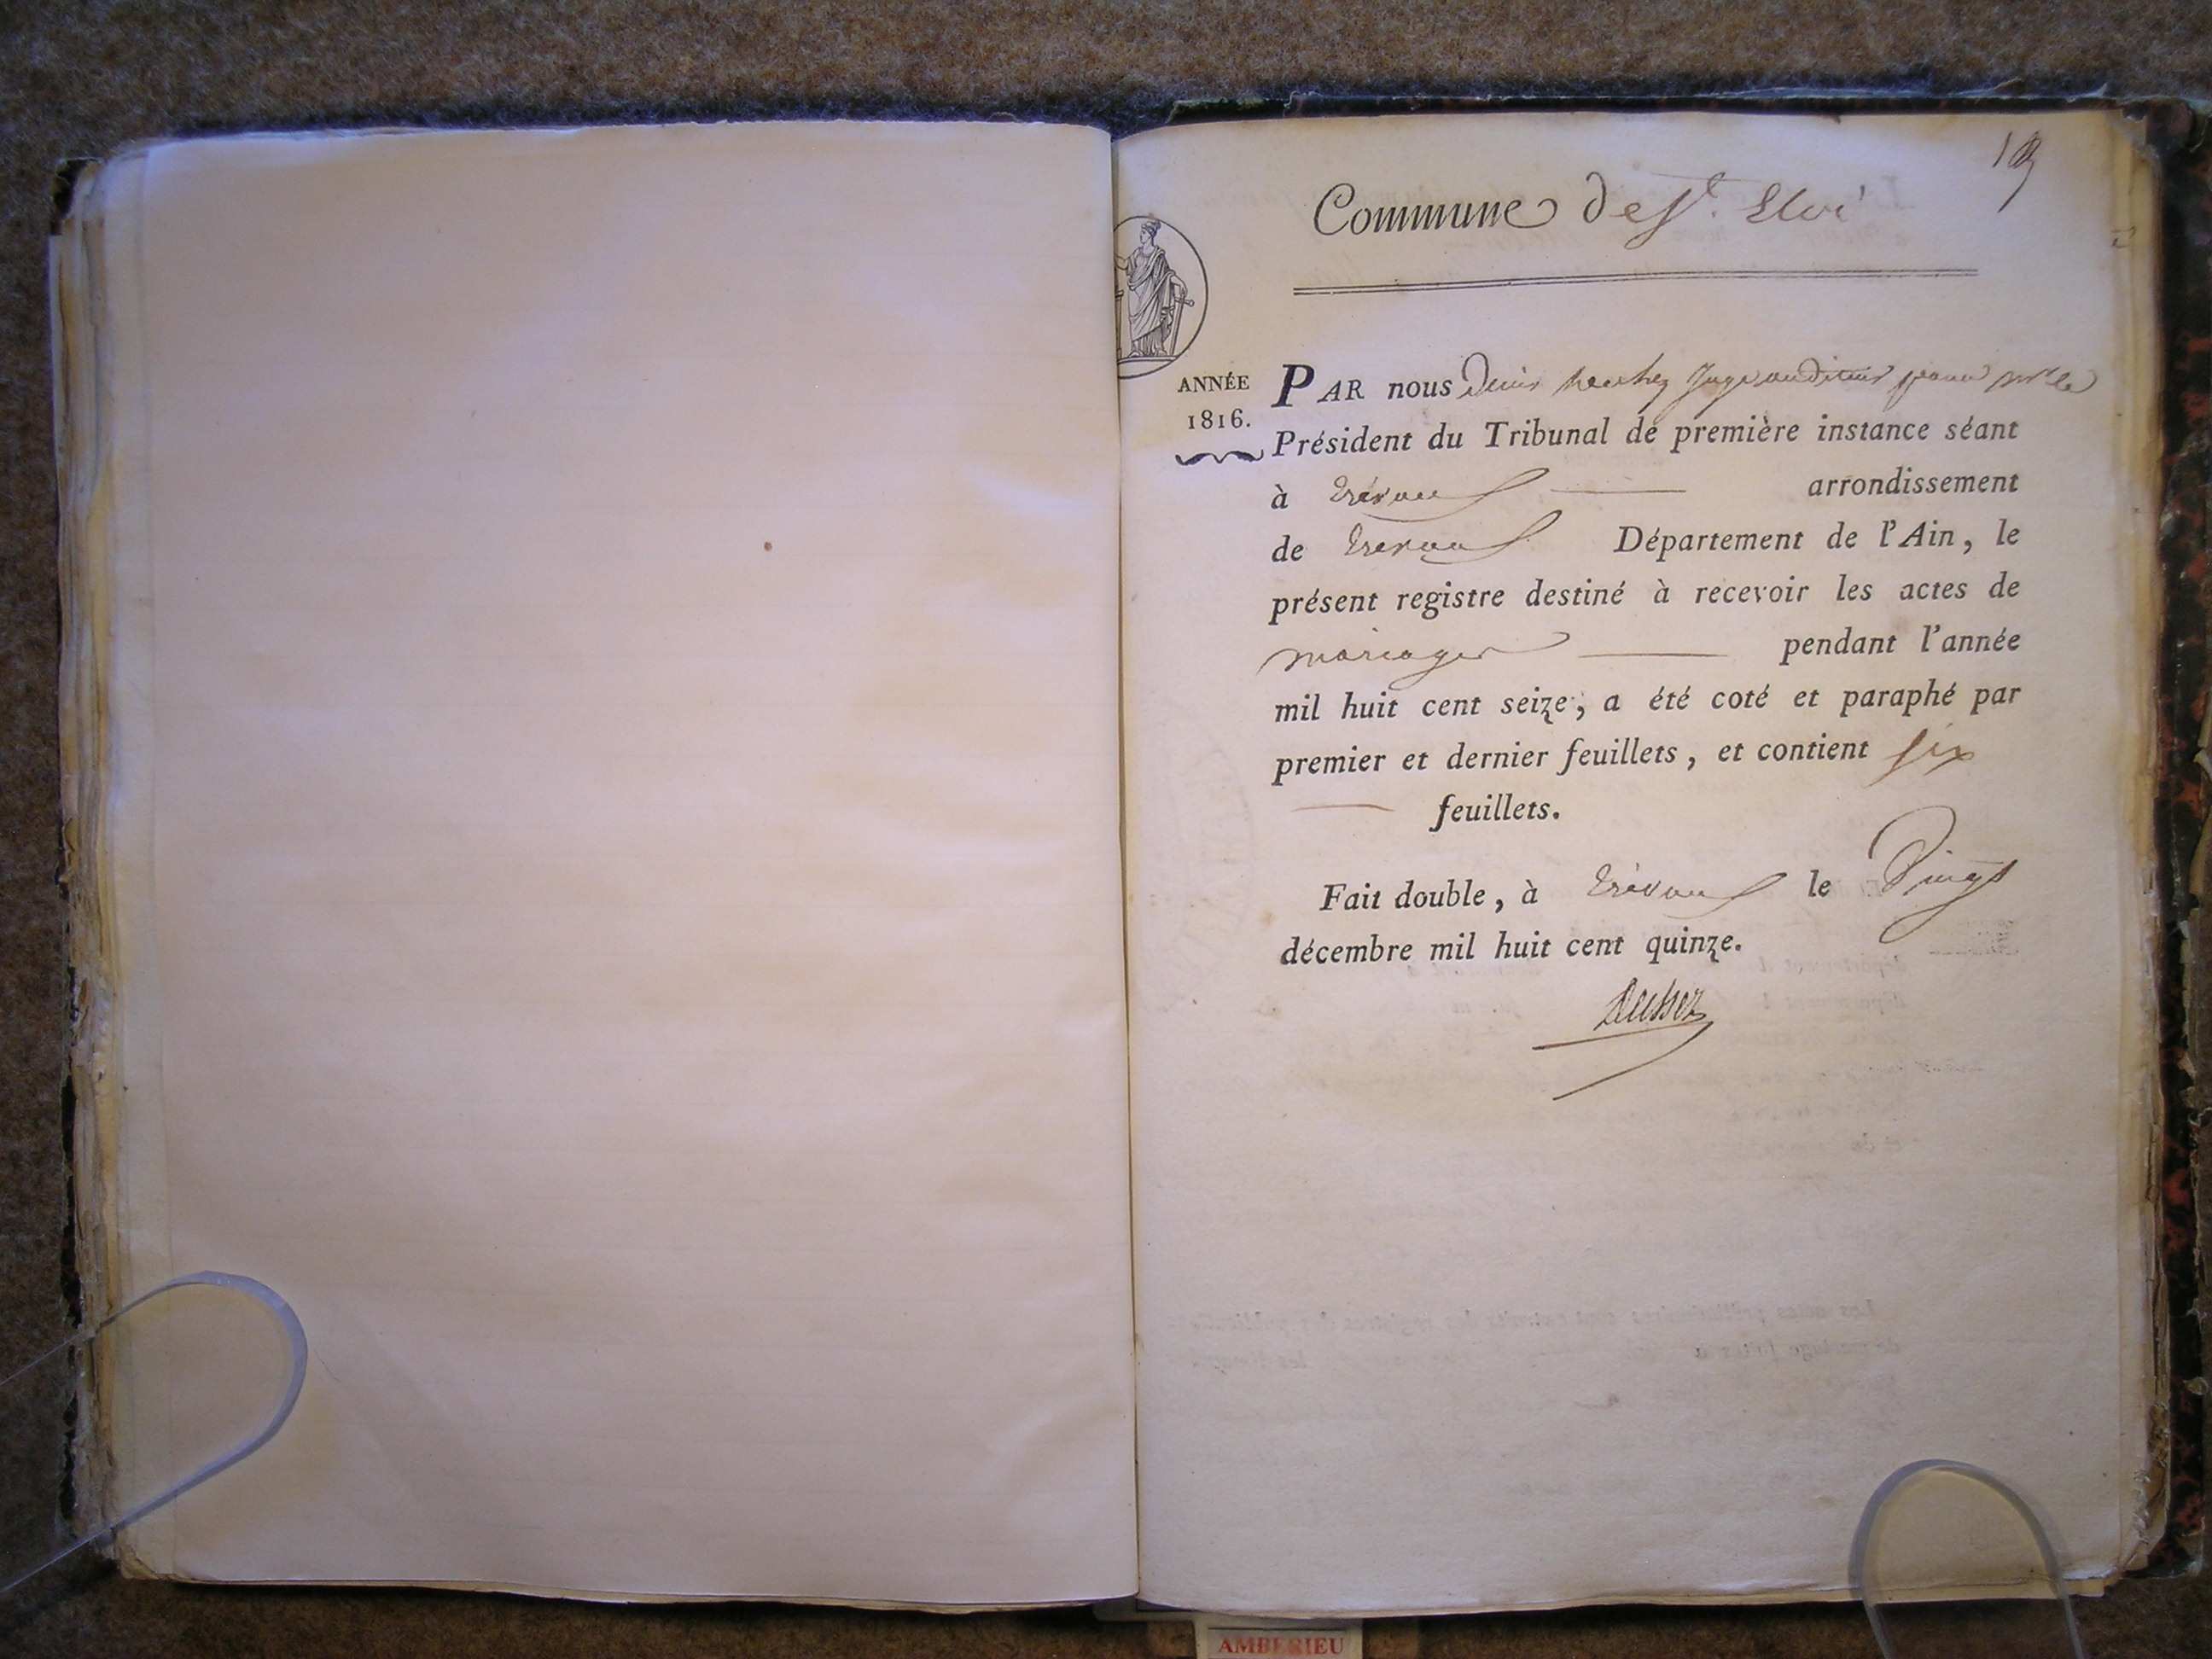 Commune de St. Eloi
ANNÉE
1816.
PAR nous Denis Juge auditeur pour mr le
Président du Tribunal de première instance séant
à Trévoux arrondissement
de Trevoux Département de l'Ain, le
présent registre destiné à recevoir les actes de
mariages pendant l'année
mil huit cent seize, a été coté et paraphé par
premier et dernier feuillets, et contient six
feuillets.
Fait double, à Trévoux le Vingt
décembre mil huit cent quinze.
AMBERIEU